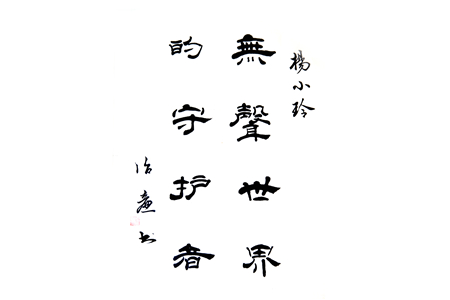 楊小玲
無聲世界
的守护者
治意书